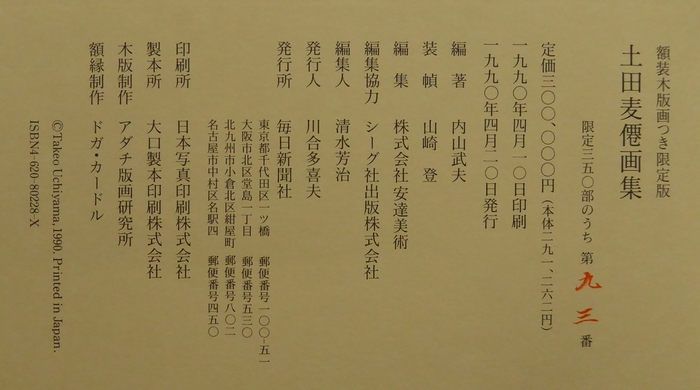 額装木版画つき限定版
土田麦僊画集
限定三五〇部のうち 第九三番
定価三〇〇、〇〇〇円（本体二九一、二六二円）
一九九〇年四月一〇日印刷
一九九〇年四月二〇日発行
編著 内山武夫
装幀 山崎登
編集 株式会社安達美術
編集協力 シーグ社出版株式会社
編集人 清水芳治
発行人 川合多喜夫
発行所 毎日新聞社
東京都千代田区一ツ橋 郵便番号一〇〇-五一
大阪市北区堂島一丁目 郵便番号五三〇
北九州市小倉北区紺屋町 郵便番号八〇二
名古屋市中村区名駅四 郵便番号四五〇
印刷所 日本写真印刷株式会社
製本所 大口製本印刷株式会社
木版制作 アダチ版画研究所
額縁制作 ドガ・カードル
©Takeo Uchiyama, 1990. Printed in Japan.
ISBN4-620-80228-X